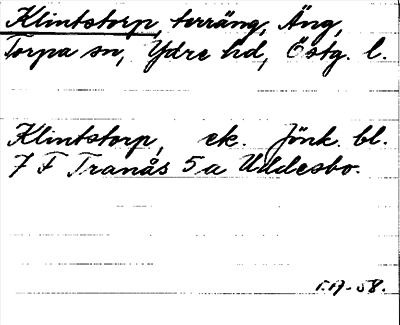 Klintstorp, terräng, Äng,
Torpa sn, Ydre hd, Östg. l.
Klintstorp, ek. Jönk. bl.
7 F Tranås 5 a Uddesbo.